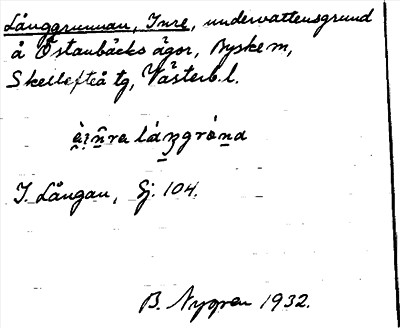 Långgrunnan, Inre, undervattensgrund
å Östanbäcks ägor, Byske sn,
Skellefteå tg, Västerb. l.
I. Långan, Ej. 104.
B. Nygren 1932.